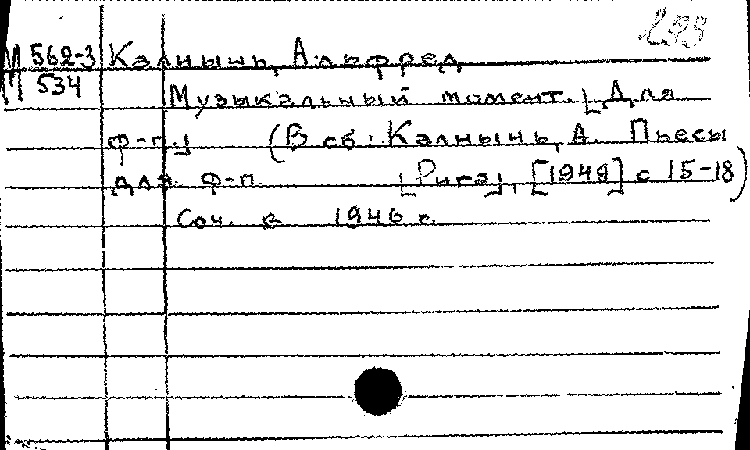 293
М 562-3 Калнынь, Альфред
М 534 Музыкальный момент. [Для
ф-п.] (В сб.: Калнынь, А. Пьесы
для ф-п. [Рига], [1949] с 15-18)
Соч. в 1946 г.